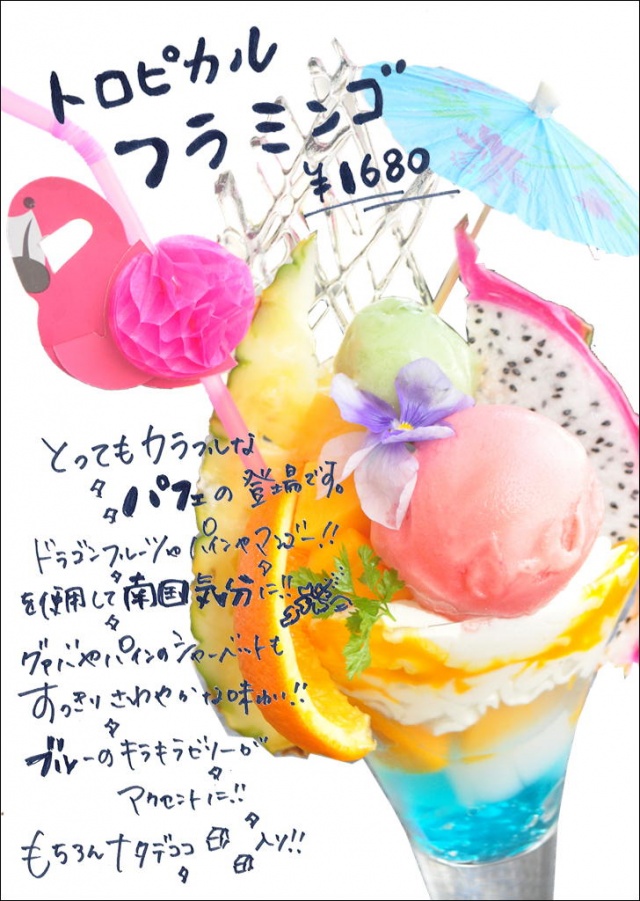 トロピカル
フラミンゴ
¥1680
とってもカラフルな
パフェの登場です。
ドラゴンフルーツやパインやマンゴー!!
を使用して南国気分に!!
グァバやパインのシャーベットも
すっきりさわやかな味わい!!
ブルーのキラキラゼリーが
アクセントに!!
もちろんナタデココ入り!!